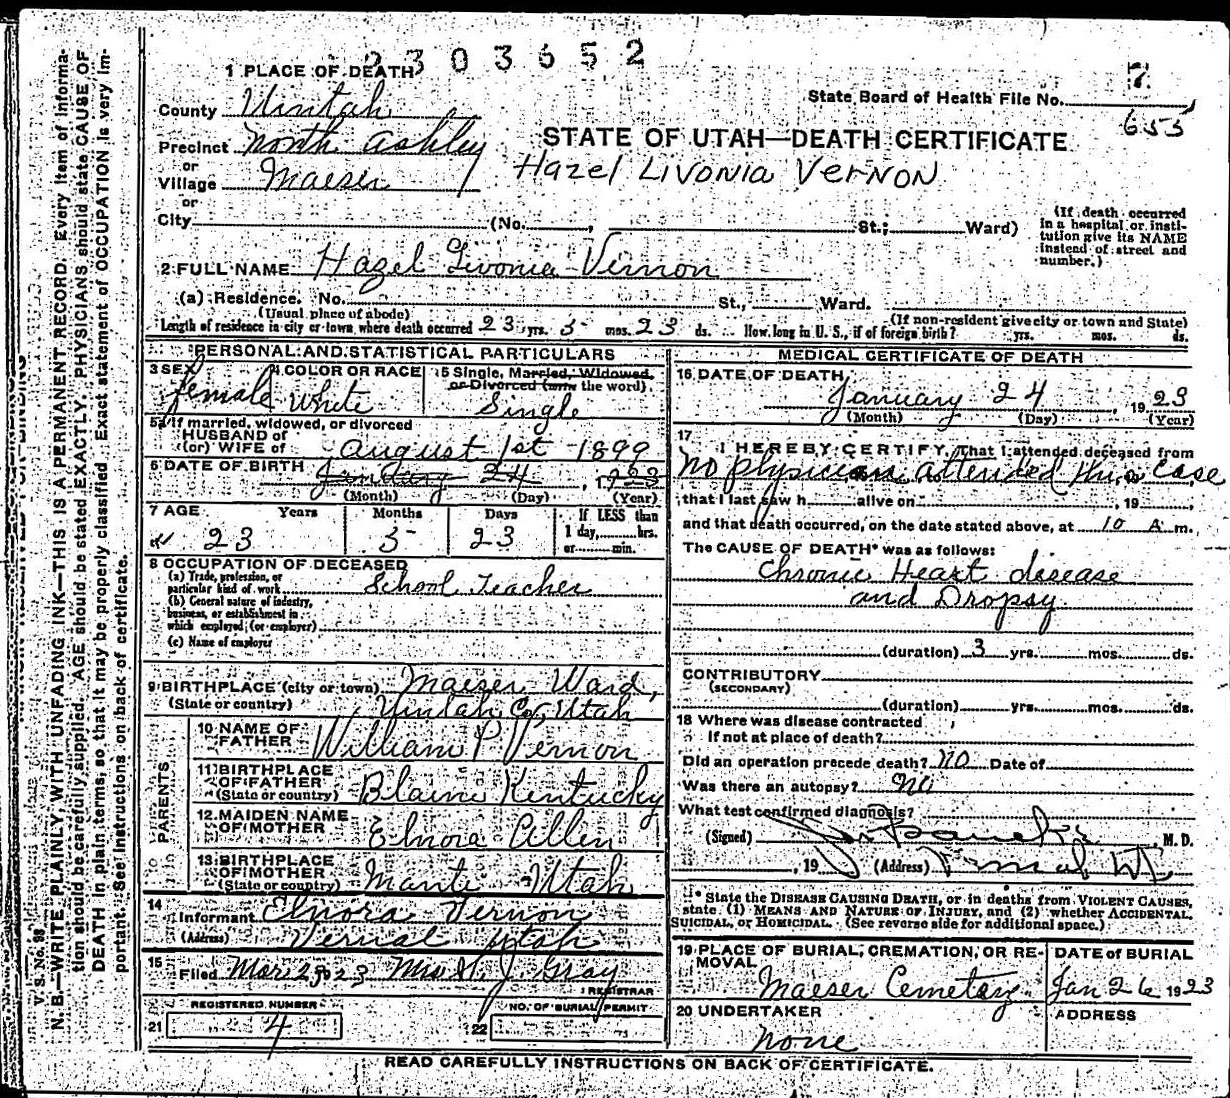 2303652
1 PLACE OF DEATH
7
County Uintah
State Board of Health File No.
655
Precinct North Ashley
STATE OF UTAH—DEATH CERTIFICATE
or
Village Maeser
Hazel Livonia Vernon
or
City (No. , St.; Ward)
(If death occurred in a hospital or institution give its NAME instead of street and number.)
2 FULL NAME Hazel Livonia Vernon
(a) Residence. No. St., Ward.
(Usual place of abode) (If non-resident give city or town and State)
Length of residence in city or town where death occurred 23 yrs. 5 mos. 23 ds. How long in U. S., if of foreign birth? yrs. mos. ds.
PERSONAL AND STATISTICAL PARTICULARS
3 SEX female
4 COLOR OR RACE White
5 Single, Married, Widowed, or Divorced (write the word). Single
5a If married, widowed, or divorced
HUSBAND of
(or) WIFE of
August 1st 1899
6 DATE OF BIRTH January 24, 1923
(Month) (Day) (Year)
7 AGE Years Months Days If LESS than
23 5 23 1 day, hrs.
or min.
8 OCCUPATION OF DECEASED
(a) Trade, profession, or
particular kind of work School Teacher
(b) General nature of industry,
business, or establishment in
which employed (or employer)
(c) Name of employer
9 BIRTHPLACE (city or town) Maeser Ward,
(State or country) Uintah Co, Utah
PARENTS
10 NAME OF
FATHER William P Vernon
11 BIRTHPLACE
OF FATHER
(State or country) Blaine Kentucky
12 MAIDEN NAME
OF MOTHER Elnora Allen
13 BIRTHPLACE
OF MOTHER
(State or country) Manti Utah
14
Informant Elnora Vernon
(Address) Vernal Utah
15
Filed Mar 2, 1923 Mrs. J. Gray
REGISTRAR
REGISTERED NUMBER NO. OF BURIAL PERMIT
21 4 22
MEDICAL CERTIFICATE OF DEATH
16 DATE OF DEATH
January 24, 1923
(Month) (Day) (Year)
17
I HEREBY CERTIFY, That I attended deceased from
No physician attended this case
that I last saw h alive on , 19
and that death occurred, on the date stated above, at 10 A m.
The CAUSE OF DEATH* was as follows:
Chronic Heart disease
and Dropsy
(duration) 3 yrs. mos. ds.
CONTRIBUTORY
(SECONDARY)
(duration) yrs. mos. ds.
18 Where was disease contracted
If not at place of death?
Did an operation precede death? No Date of
Was there an autopsy? No
What test confirmed diagnosis?
(Signed) M. D.
, 19 (Address) Vernal Ut
* State the DISEASE CAUSING DEATH, or in deaths from VIOLENT CAUSES,
state (1) MEANS AND NATURE OF INJURY, and (2) whether ACCIDENTAL,
SUICIDAL, or HOMICIDAL. (See reverse side for additional space.)
19 PLACE OF BURIAL, CREMATION, OR REMOVAL
Maeser Cemetary
DATE OF BURIAL
Jan 26 1923
20 UNDERTAKER
None
ADDRESS
READ CAREFULLY INSTRUCTIONS ON BACK OF CERTIFICATE.
V. S. No.
N. B.—WRITE PLAINLY, WITH UNFADING INK—THIS IS A PERMANENT RECORD. Every item of information should be carefully supplied. AGE should be stated EXACTLY. PHYSICIANS should state CAUSE OF DEATH in plain terms, so that it may be properly classified. Exact statement of OCCUPATION is very important. See instructions on back of certificate.